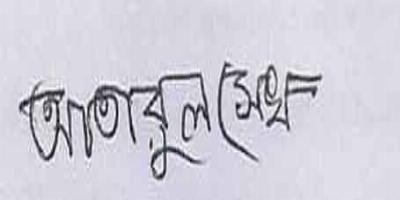 আতাবুল সেখ